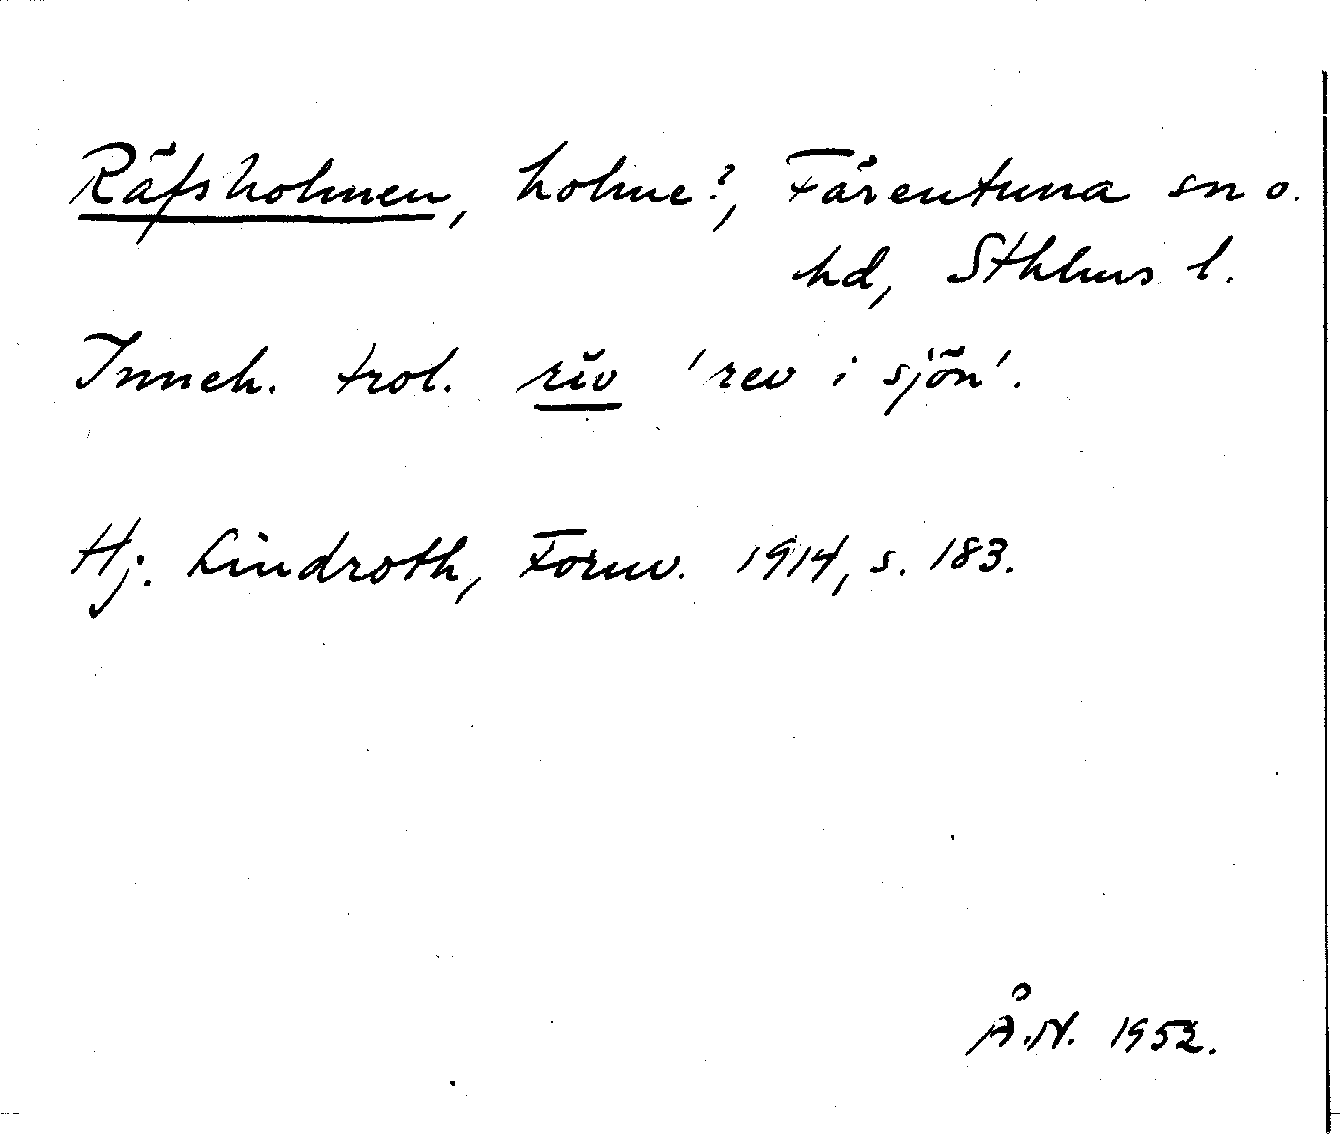 Räfsholmen, holme?, Färentuna sn o.
hd, Sthlms l.
Inneh. trol. rĭv 'rev i sjön'.
Hj. Lindroth, Fornv. 1914, s. 183.
Å.N. 1952.